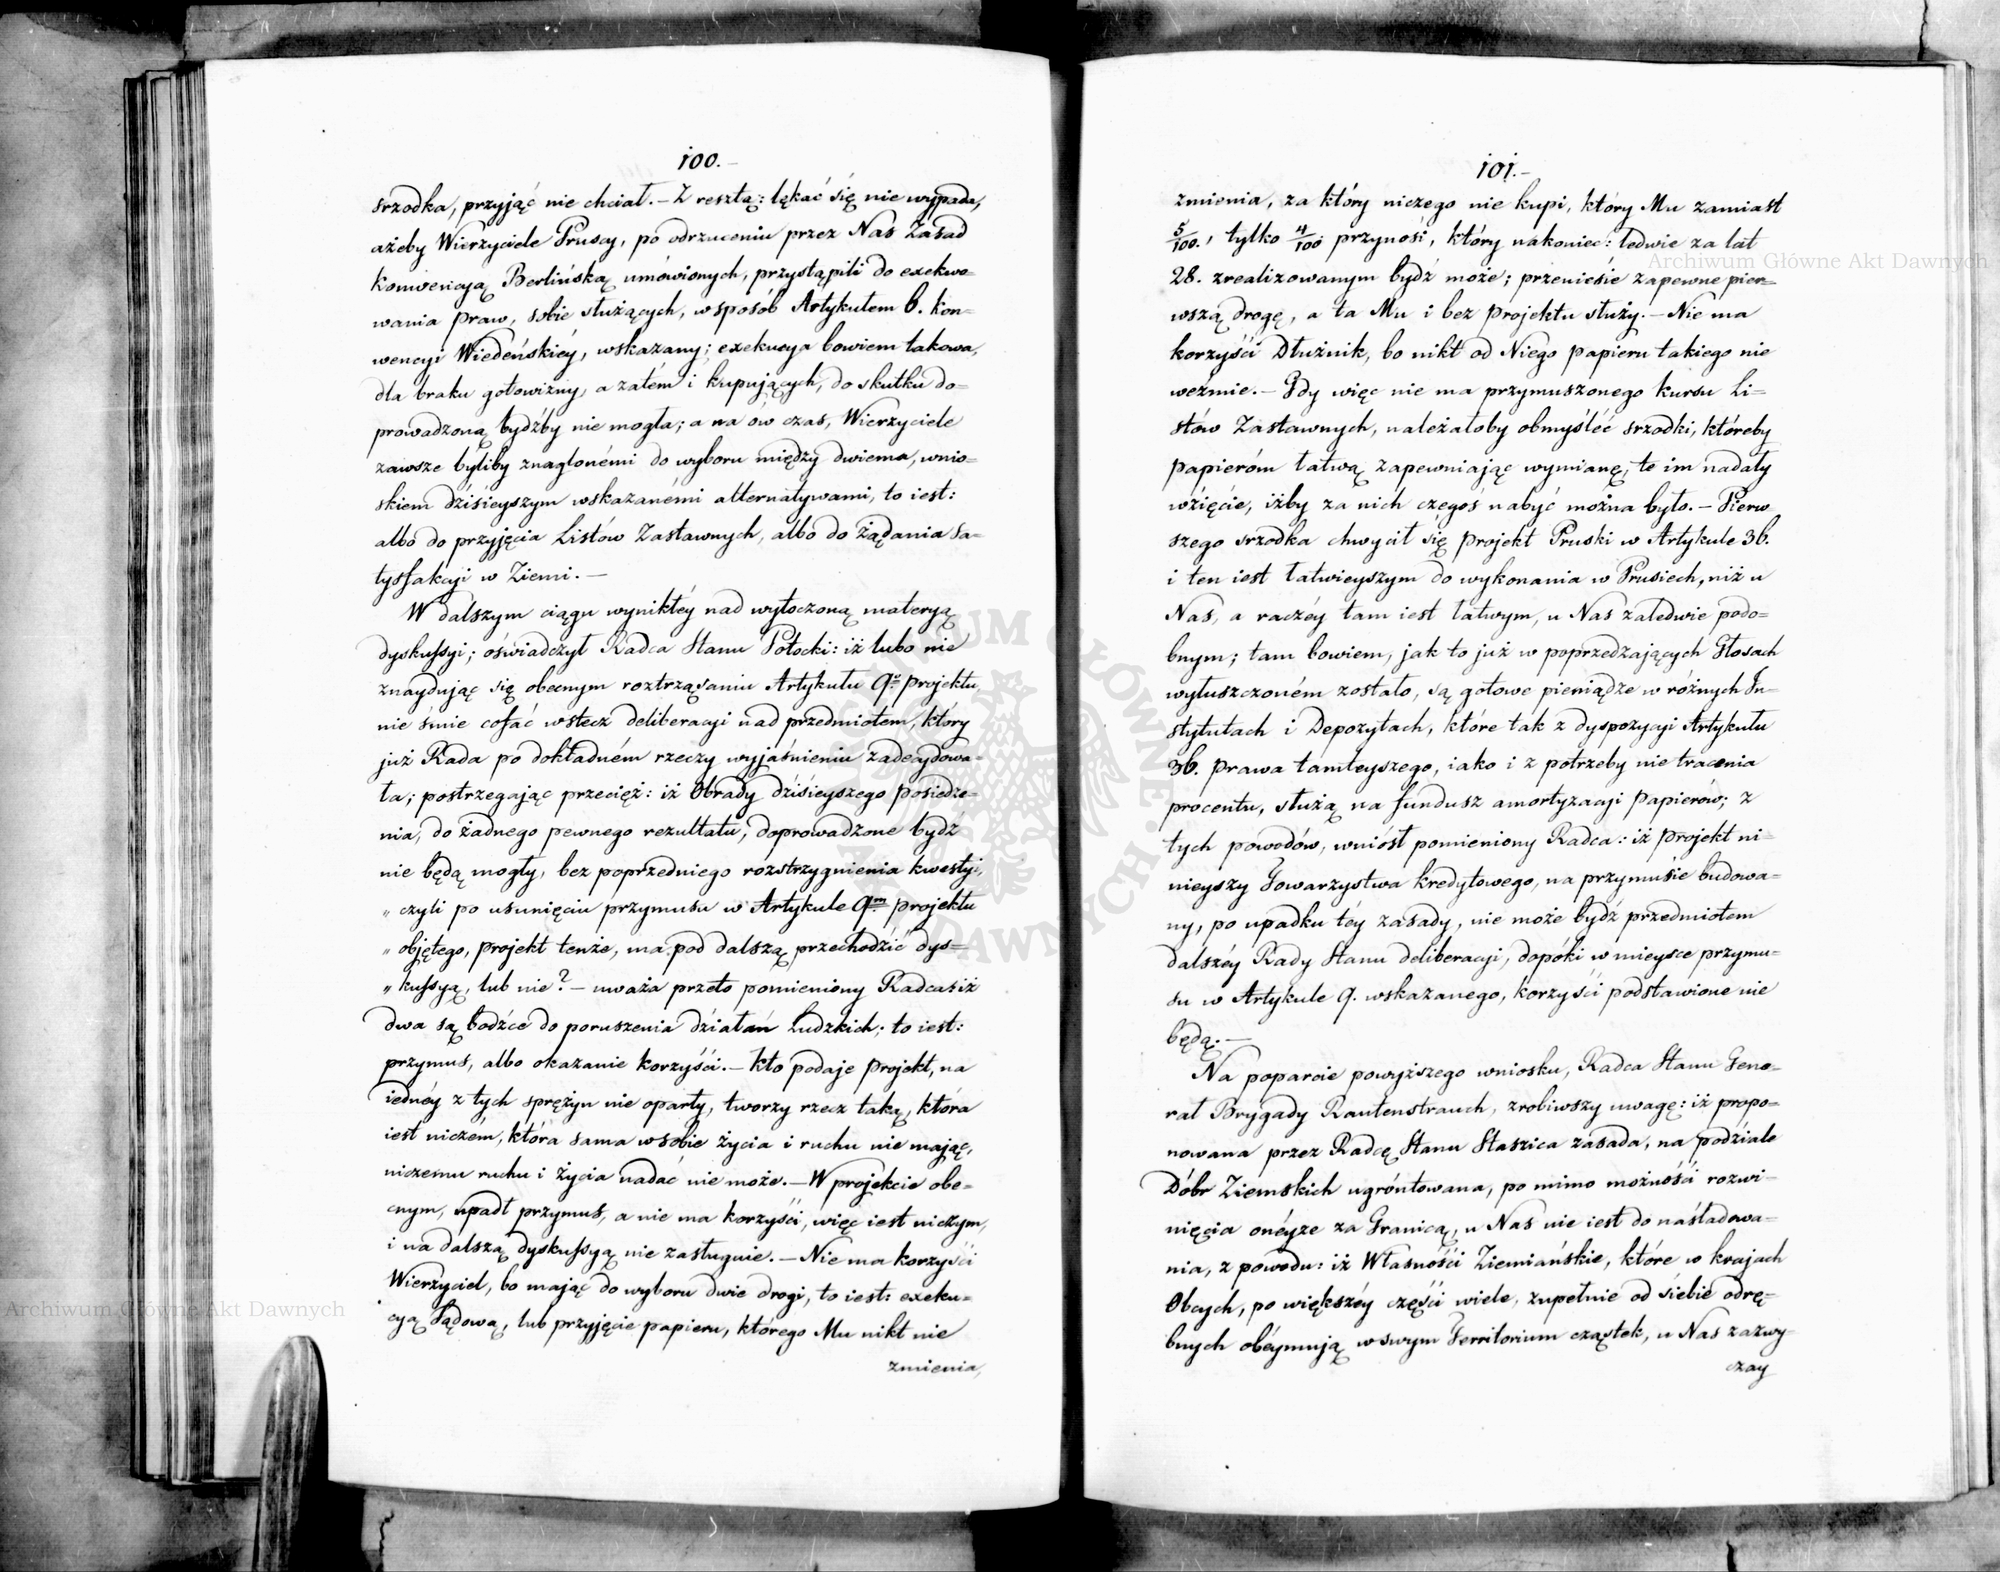 100.
srzodka, przyjąć nie chciał. – Z resztą: lękać się nie wypada,
ażeby Wierzyciele Pruscy, po odrzuceniu przez Nas Zasad
Konwencyą Berlińską umówionych, przystąpili do exekwo=
wania praw, sobie służących, w sposób Artykułem 6. Kon=
wencyi Wiedeńskiéy, wskazany; exekucya bowiem takowa,
dla braku gotowizny, a zatém i kupujących, do skutku do=
prowadzoną bydźby nie mogła; a na ów czas, Wierzyciele
zawsze byliby znaglonémi do wyboru między dwiema, wnio=
skiem dzisieyszym wskazanémi alternatywami, to iest:
albo do przyjęcia Listów Zastawnych, albo do żądania Sa=
tysfakcyi w Ziemi. –
W dalszym ciągu wynikłéy nad wytoczoną materyą
dyskussyi; oświadczył Radca Stanu Potocki: iż lubo nie
znayduiąc się obecnym roztrząsaniu Artykułu 9º projektu
nie śmie cofać wstecz deliberacyi nad przedmiotem, który
już Rada po dokładném rzeczy wyjaśnieniu zadecydowa=
ła; postrzegając przecięż: iż Obrady dzisieyszego posiedze=
nia, do żadnego pewnego rezultatu, doprowadzone bydź
nie będą mogły, bez poprzedniego rozstrzygnienia kwestyi,
„ czyli po usunięciu przymusu w Artykule 9m projektu
„ objętego, projekt tenże, ma pod dalszą przechodzić dys=
„ kussyą, lub nie? – uważa przeto pomieniony Radca: iż
dwa są bodźce do poruszenia działań Ludzkich; to iest:
przymus, albo okazanie korzyści. – Kto podaje projekt, na
iednéy z tych sprężyn nie oparty, tworzy rzecz taką, która
iest niczém, która sama w sobie życia i ruchu nie mając,
niczemu ruchu i życia nadać nie może. – W projekcie obe=
cnym, upadł przymus, a nie ma korzyści, więc iest niczym,
i na dalszą dyskussyą nie zasługuie. – Nie ma korzyści
Wierzyciel, bo mając do wyboru dwie drogi, to iest: exeku=
cyą Sądową, lub przyjęcie papieru, którego Mu nikt nie
zmienia,
101.
zmienia, za który niczego nie kupi, który Mu zamiast
5/100., tylko 4/100 przynosi, który nakoniec: ledwie za lat
28. zrealizowanym bydź może; przeniesie zapewne pier=
wszą drogę, a ta Mu i bez projektu służy. – Nie ma
korzyści Dłużnik, bo nikt od Niego papieru takiego nie
weźmie. – Gdy więc nie ma przymuszonego kursu Li=
stów Zastawnych, należałoby obmyśléć srzodki, któreby
papieróm łatwą zapewniając wymianę, te im nadały
wzięcie, iżby za nich czegoś nabyć można było. – Pierw
szego srzodka chwycił się projekt Pruski w Artykule 36.
i ten iest łatwieyszym do wykonania w Prusiech, niż u
Nas, a raczéy tam iest łatwym, u Nas zaledwie podo=
bnym; tam bowiem, jak to już w poprzedzających Głosach
wyłuszczoném zostało, są gotowe pieniądze w różnych In=
stytutach i Depozytach, które tak z dyspozycyi Artykułu
36. Prawa tamteyszego, iako i z potrzeby nie tracenia
procentu, służą na fundusz amortyzacyi papierów; z
tych powodów, wniósł pomieniony Radca: iż projekt ni=
nieyszy Towarzystwa kredytowego, na przymusie budowa=
ny, po upadku téy zasady, nie może bydź przedmiotem
dalszéy Rady Stanu deliberacyi, dopóki w mieysce przymu=
su w Artykule 9. wskazanego, korzyści podstawione nie
będą. –
Na poparcie powyższego wniosku, Radca Stanu Gene=
rał Brygady Rautenstrauch, zrobiwszy uwagę: iż propo=
nowana przez Radcę Stanu Staszica zasada, na podziale
Dóbr Ziemskich ugróntowana, po mimo możności rozwi=
nięcia onéyze za Granicą, u Nas nie iest do naśladowa=
nia, z powodu: iż Własności Ziemiańskie, które w krajach
Obcych, po większéy części wiele, zupełnie od siebie odrę=
bnych obéymują w swym Territorium cząstek, u Nas zazwy=
czay
Archiwum Główne Akt Dawnych
Archiwum Główne Akt Dawnych
ARCHIWUM GŁÓWNE AKT DAWNYCH